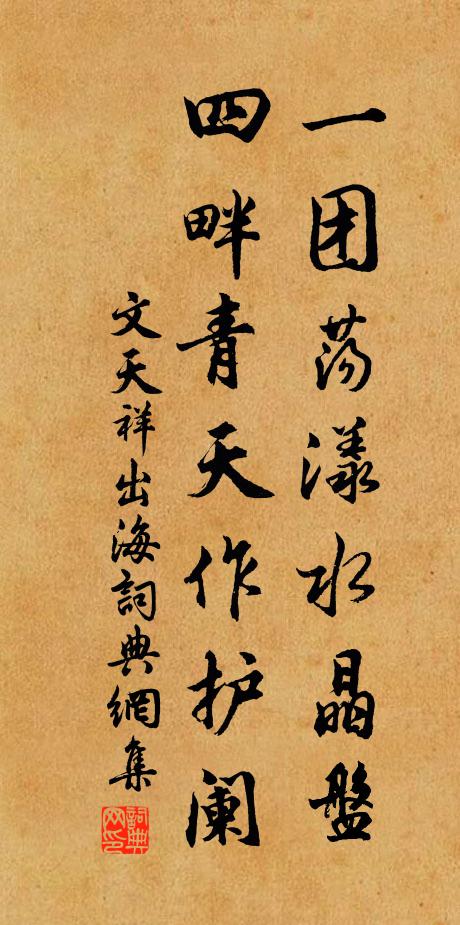 一团荡漾水晶盤
四畔青天作护阑
文天祥出海詞典網集
詞典网印